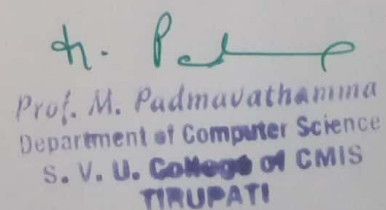 Prof. M. Padmavathamma
Department of Computer Science
S. V. U. College of CMIS
TIRUPATI